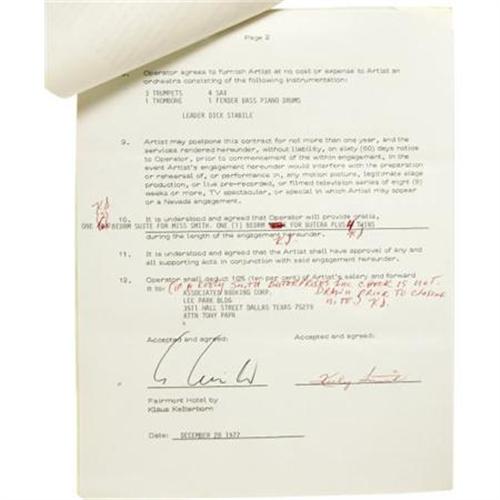 Page 2
Operator agrees to furnish Artist at no cost or expense to Artist an
orchestra consisting of the following instrumentation:
3 TRUMPETS 4 SAX
1 TROMBONE 1 FENDER BASS PIANO DRUMS
LEADER DICK STABILE
9. Artist may postpone this contract for not more than one year, and the
services rendered hereunder, without liability, on sixty (60) days notice
to Operator, prior to commencement of the within engagement, in the
event Artist's engagement hereunder would interfere with the preparation
or rehearsal of, or performance in, any motion picture, legitimate stage
production, or live pre-recorded, or filmed television series of eight (8)
weeks or more, TV spectacular, or special in which Artist may appear
or a Nevada engagement.
K.S.
10. It is understood and agreed that Operator will provide gratis,
ONE BEDRM SUITE FOR MISS SMITH. ONE (1) BEDRM FOR BUTERA PLUS 4 TWINS
during the length of the engagement hereunder.
K.S. K.S.
11. It is understood and agreed that the Artist shall have approval of any
and all supporting acts in conjunction with said engagement hereunder.
12. Operator shall deduct 10% (ten per cent) of Artist's salary and forward
it to: (IF A KEELY SMITH ENTERPRISES INC. CHECK IS NOT
DRAWN PRIOR TO CLOSING
NITE) K.S.
ASSOCIATED BOOKING CORP.
LEE PARK BLDG
3511 HALL STREET DALLAS TEXAS 75219
ATTN TONY PAPA
Accepted and agreed: Accepted and agreed:
Keely Smith
Fairmont Hotel by
Klaus Kelterborn
Date: DECEMBER 20 1977